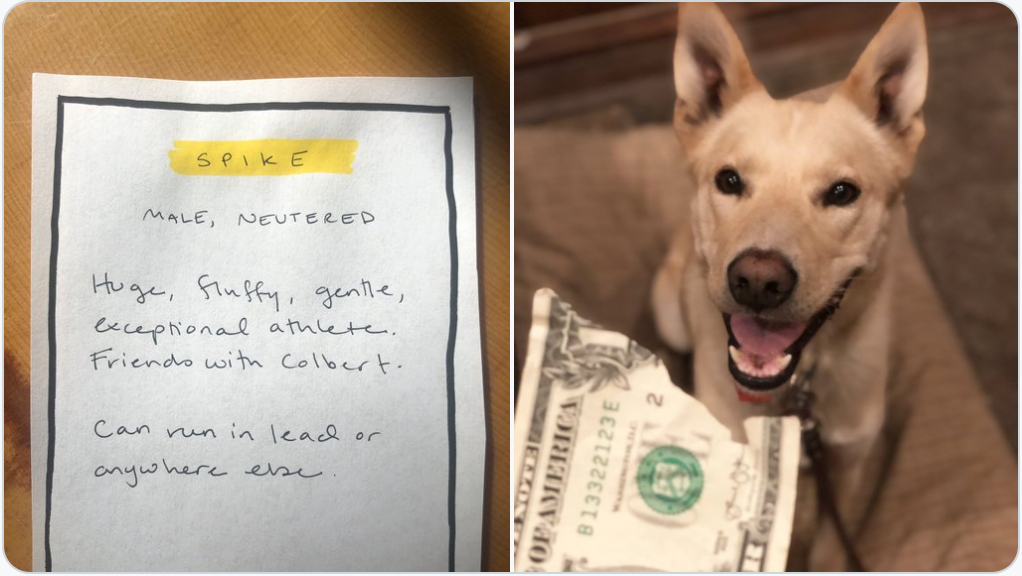 SPIKE
MALE, NEUTERED
Huge, fluffy, gentle,
exceptional athlete.
Friends with Colbert.
Can run in lead or
anywhere else.
NOTE
OF AMERICA
B13322123E
WASHINGTON, D.C.
2